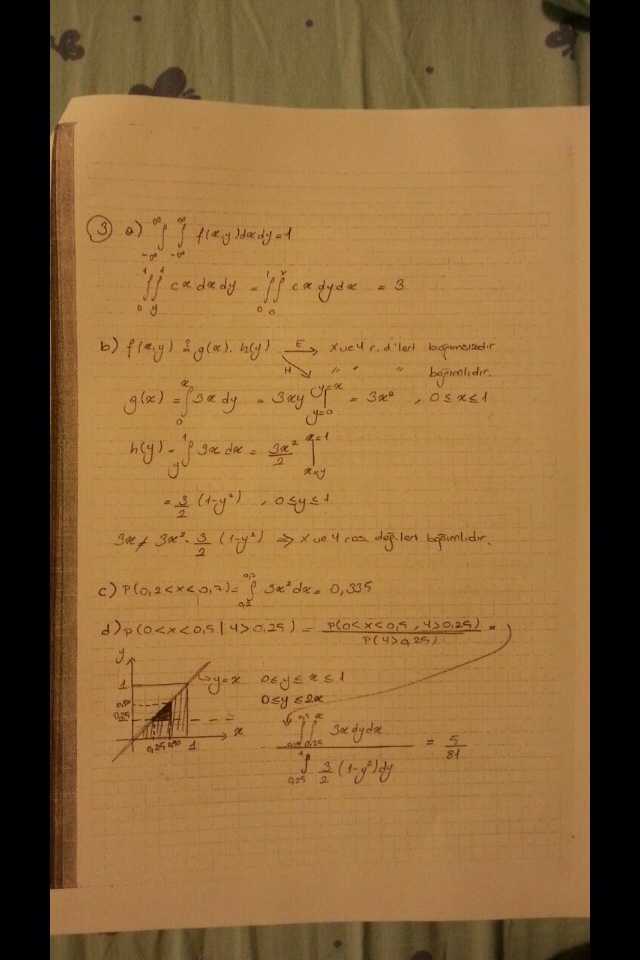 3 a) ∫_{-∞}^{∞} ∫_{-∞}^{∞} f(x,y) dx dy = 1
∫_0^1 ∫_y^1 cx dx dy = ∫_0^1 ∫_0^x cx dy dx = 3
b) f(x,y) ≟ g(x). h(y) E→ X ve Y r.d'leri bağımsızdır
H→ " " " bağımlıdır.
g(x) = ∫_0^x 3x dy = 3xy |_{y=0}^{y=x} = 3x² , 0≤x≤1
h(y) = ∫_y^1 3x dx = 3x²/2 |_{x=y}^{x=1}
= 3/2 (1-y²) , 0≤y≤1
3x ≠ 3x² · 3/2 (1-y²) ⇒ X ve Y ras. değ.leri bağımlıdır.
c) P(0,2<x<0,7) = ∫_{0,2}^{0,7} 3x² dx = 0,335
d) P(0<x<0,5 | Y>0,25) = P(0<x<0,5 , Y>0,25) / P(Y>0,25) =
y
y=x 0≤y≤x≤1
1
0≤y≤2x
0,50
0,25
x
0,25 0,50 1
∫_{0,25}^{0,5} ∫_{0,25}^{x} 3x dy dx / ∫_{0,25}^1 3/2 (1-y²) dy = 5/81